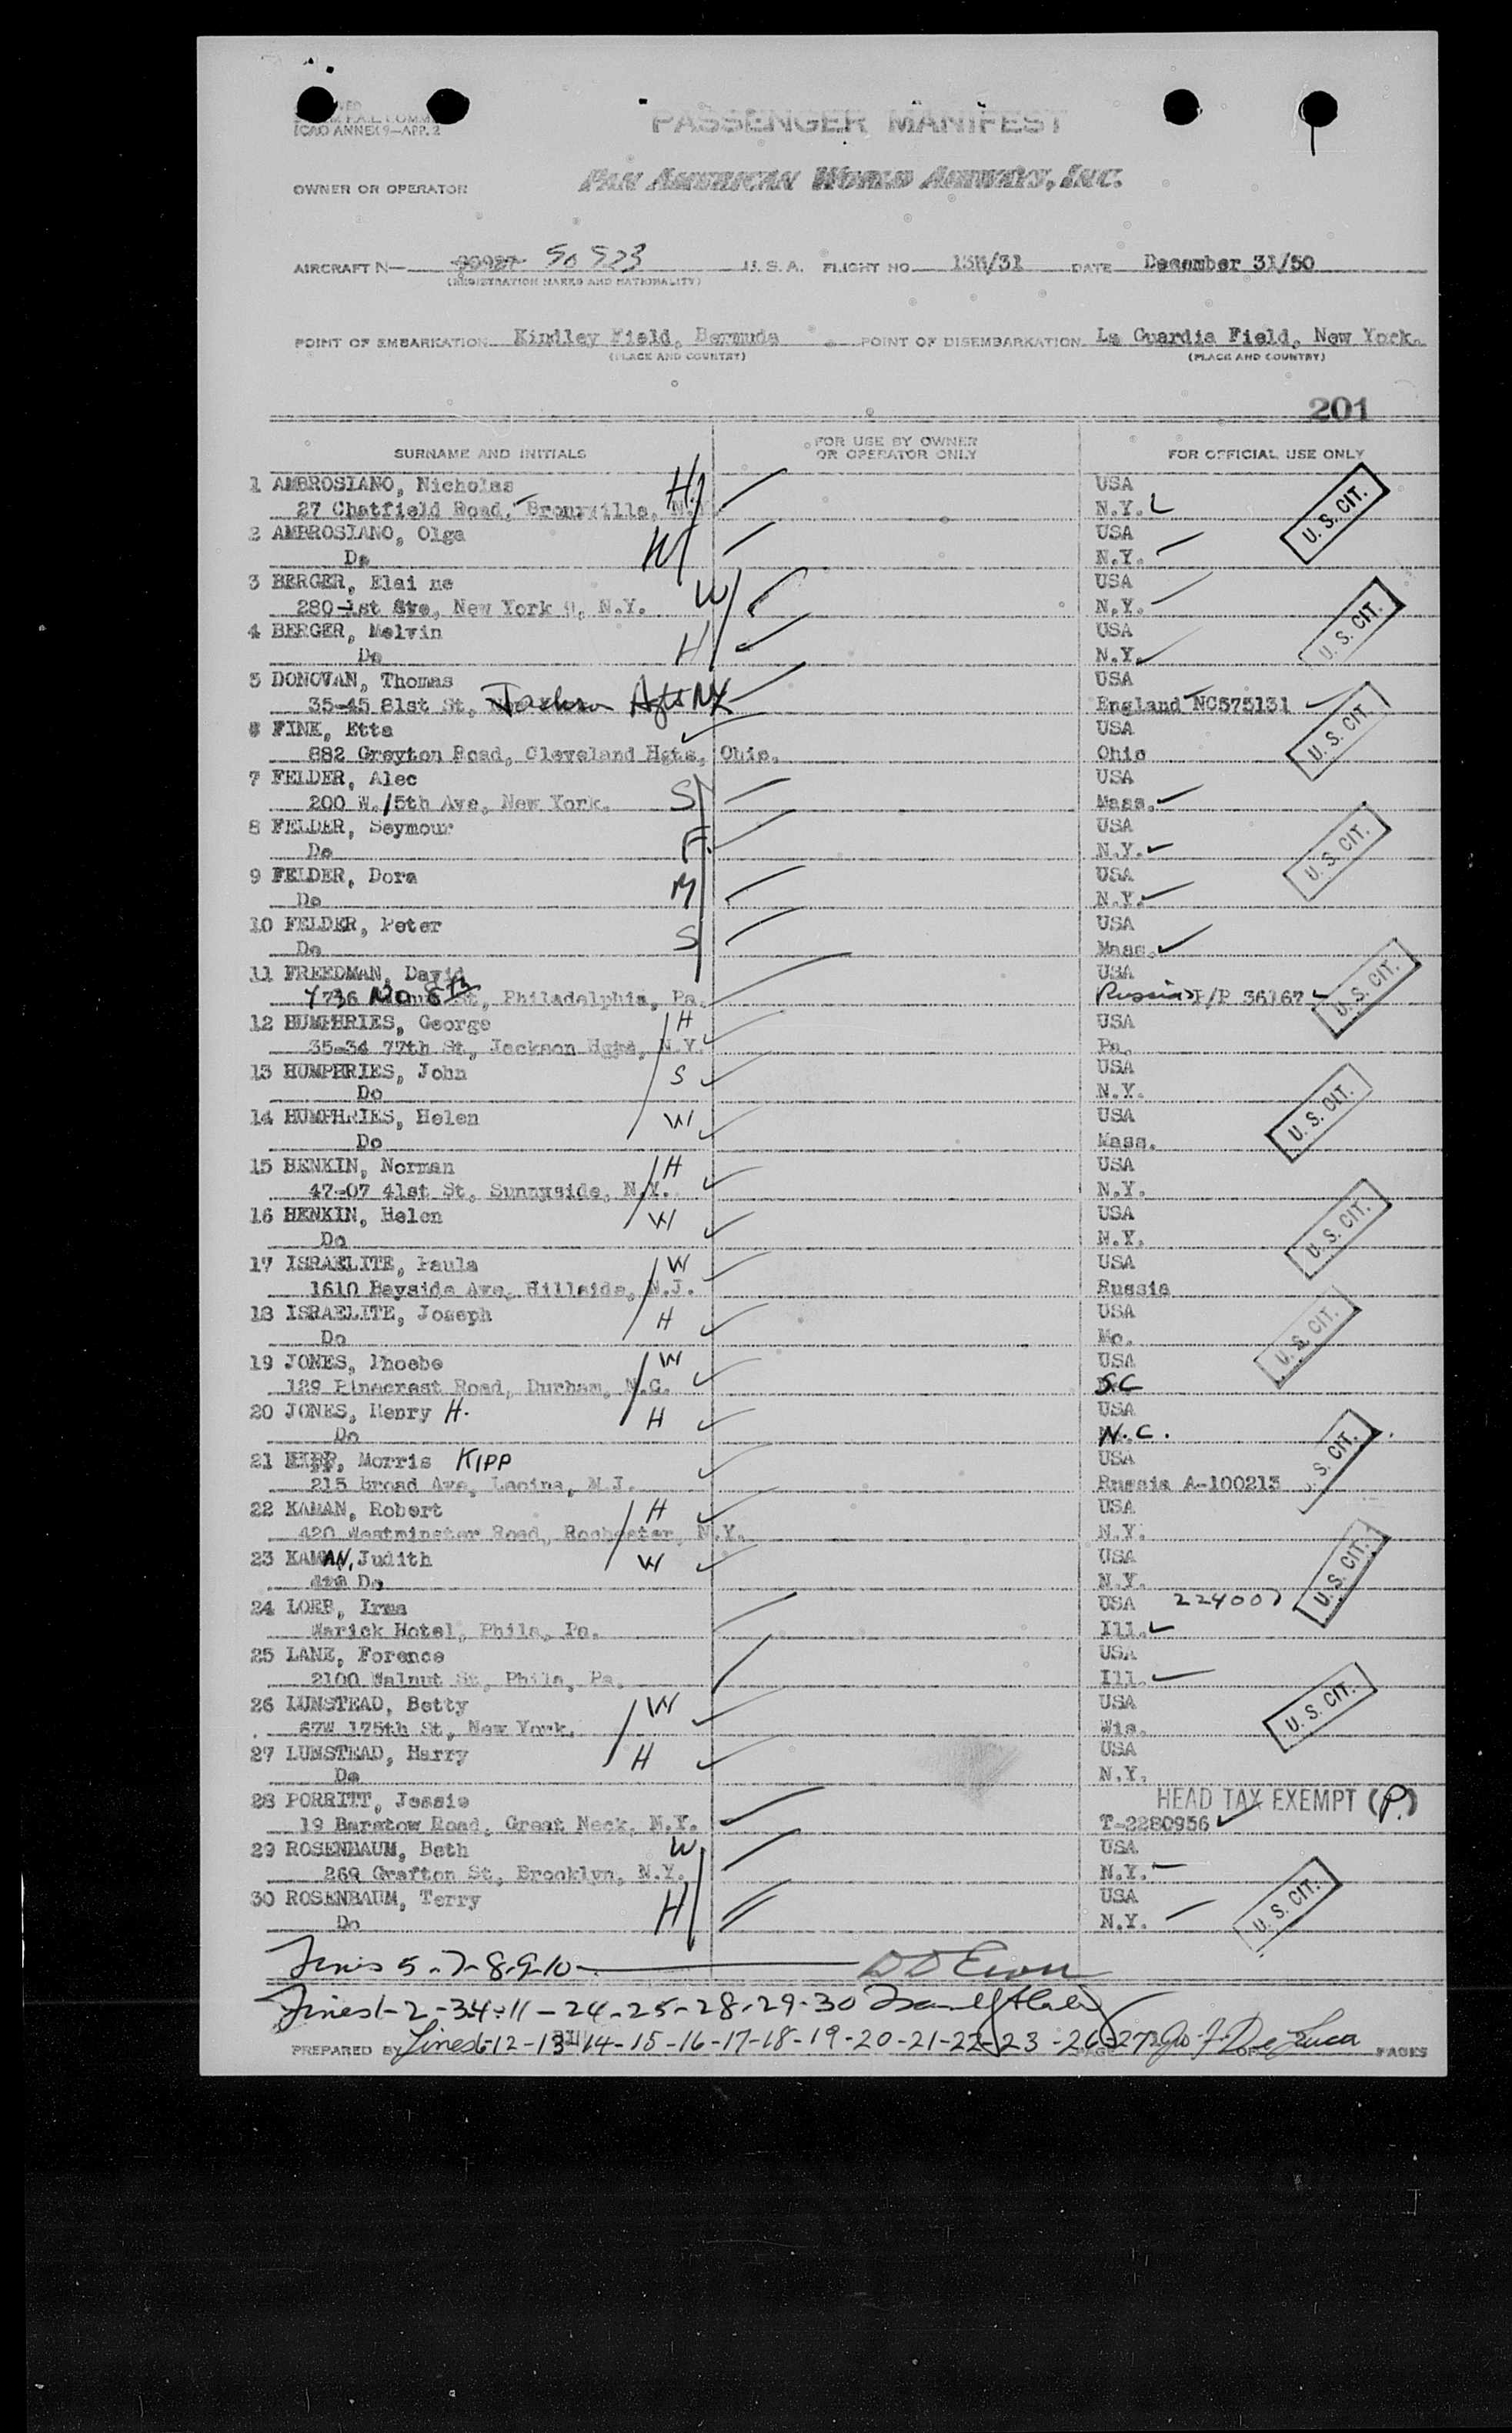 ICAO ANNEX 9—APP. 2
PASSENGER MANIFEST
OWNER OR OPERATOR
PAN AMERICAN WORLD AIRWAYS, INC.
AIRCRAFT N— 90927 50 523 U. S. A. FLIGHT NO. /31 DATE December 31/50
(REGISTRATION MARKS AND NATIONALITY)
POINT OF EMBARKATION Kindley Field, Bermuda POINT OF DISEMBARKATION La Guardia Field, New York.
(PLACE AND COUNTRY) (PLACE AND COUNTRY)
201
SURNAME AND INITIALS FOR USE BY OWNER OR OPERATOR ONLY FOR OFFICIAL USE ONLY
1 AMBROSIANO, Nicholas H USA
27 Chatfield Road, Bronxville, N. N.Y. U. S. CIT.
2 AMBROSIANO, Olga W USA
Do N.Y.
3 BERGER, Elai ne W USA
280 1st Ave, New York 9, N.Y. N.Y. U. S. CIT.
4 BERGER, Melvin H USA
Do N.Y.
5 DONOVAN, Thomas USA
35-45 81st St, Jackson Hgts NY England NC575131 U. S. CIT.
FINK, Etta USA
882 Greyton Road, Cleveland Hgts, Ohio. Ohio
7 FELDER, Alec S USA
200 W. 15th Ave, New York. Mass.
8 FELDER, Seymour F. USA
Do N.Y. U. S. CIT.
9 FELDER, Dora M USA
Do N.Y.
10 FELDER, Peter S USA
Do Mass.
11 FREEDMAN, David USA
4736 No 8th St, Philadelphia, Pa. Russia P/P 36167 U. S. CIT.
12 HUMPHRIES, George H USA
35-34 77th St, Jackson Hgts, N.Y. Pa.
13 HUMPHRIES, John S USA
Do N.Y. U. S. CIT.
14 HUMPHRIES, Helen W USA
Do Mass.
15 HENKIN, Norman H USA
47-07 41st St, Sunnyside, N.Y. N.Y.
16 HENKIN, Helen W USA
Do N.Y. U. S. CIT.
17 ISRAELITE, Paula W USA
1610 Bayside Ave, Hillside, N.J. Russia
18 ISRAELITE, Joseph H USA
Do Mo. U. S. CIT.
19 JONES, Phoebe W USA
129 Pinecrest Road, Durham, N.C. SC
20 JONES, Henry H. H USA
Do N.C.
21 Morris KIPP USA
215 Broad Ave, Leonia, N.J. Russia A-100213 U. S. CIT.
22 KAMAN, Robert H USA
420 Westminster Road, Rochester, N.Y. N.Y.
23 KAMAN, Judith W USA
Do N.Y. U. S. CIT.
24 LOEB, Irma USA 224007
Warick Hotel, Phila, Pa. Ill.
25 LANE, Forence USA
2100 Walnut St, Phila, Pa. Ill.
26 LUMSTEAD, Betty W USA
67W 175th St, New York. Wis. U. S. CIT.
27 LUMSTEAD, Harry H USA
Do N.Y.
28 PORRITT, Jessie HEAD TAX EXEMPT (P.)
19 Barstow Road, Great Neck, N.Y. T-2280956
29 ROSENBAUM, Beth W USA
269 Grafton St, Brooklyn, N.Y. N.Y.
30 ROSENBAUM, Terry H USA
Do N.Y. U. S. CIT.
Lines 5-7-8-9-10
Lines 1-2-3-4-11-24-25-28-29-30
PREPARED BY Lines 6-12-13-14-15-16-17-18-19-20-21-22-23-26-27 PAGE OF PAGES